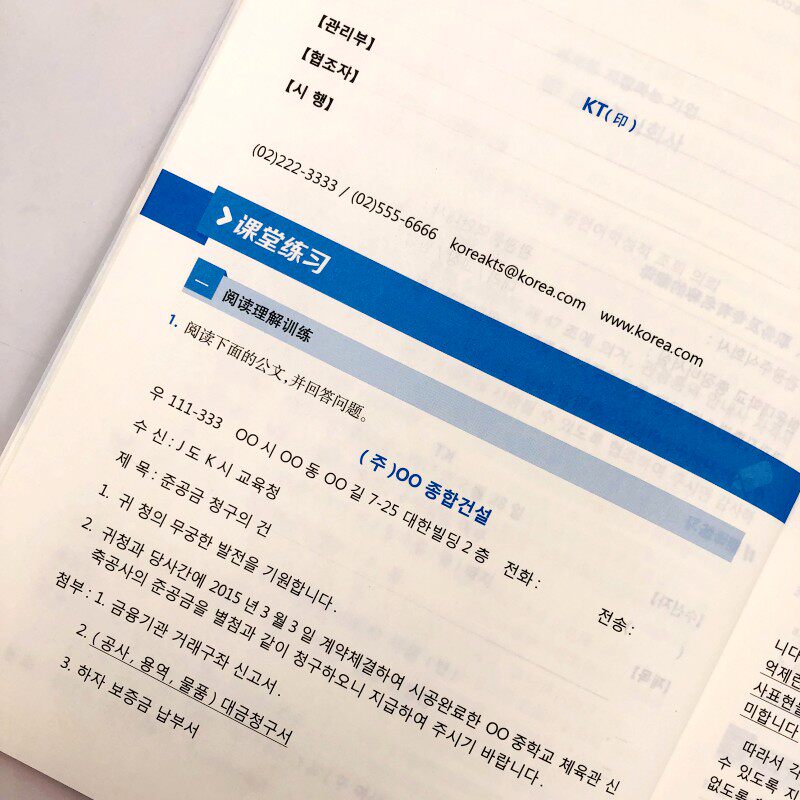 【관리부】
【협조자】
【시 행】
KT(印)
(02)222-3333 / (02)555-6666 koreakts@korea.com www.korea.com
课堂练习
一 阅读理解训练
1. 阅读下面的公文,并回答问题。
(주)OO 종합건설
우 111-333 OO 시 OO 동 OO 길 7-25 대한빌딩 2 층 전화 : 전송 :
수 신 : J 도 K 시 교육청
제 목 : 준공금 청구의 건
1. 귀 청의 무궁한 발전을 기원합니다.
2. 귀청과 당사간에 2015 년 3 월 3 일 계약체결하여 시공완료한 OO 중학교 체육관 신
축공사의 준공금을 별첨과 같이 청구하오니 지급하여 주시기 바랍니다.
첨부 : 1. 금융기관 거래구좌 신고서.
2. ( 공사 , 용역 , 물품 ) 대금청구서
3. 하자 보증금 납부서
니다
억제란
사표현을
미합니다
따라서 각
수 있도록 지
없도록